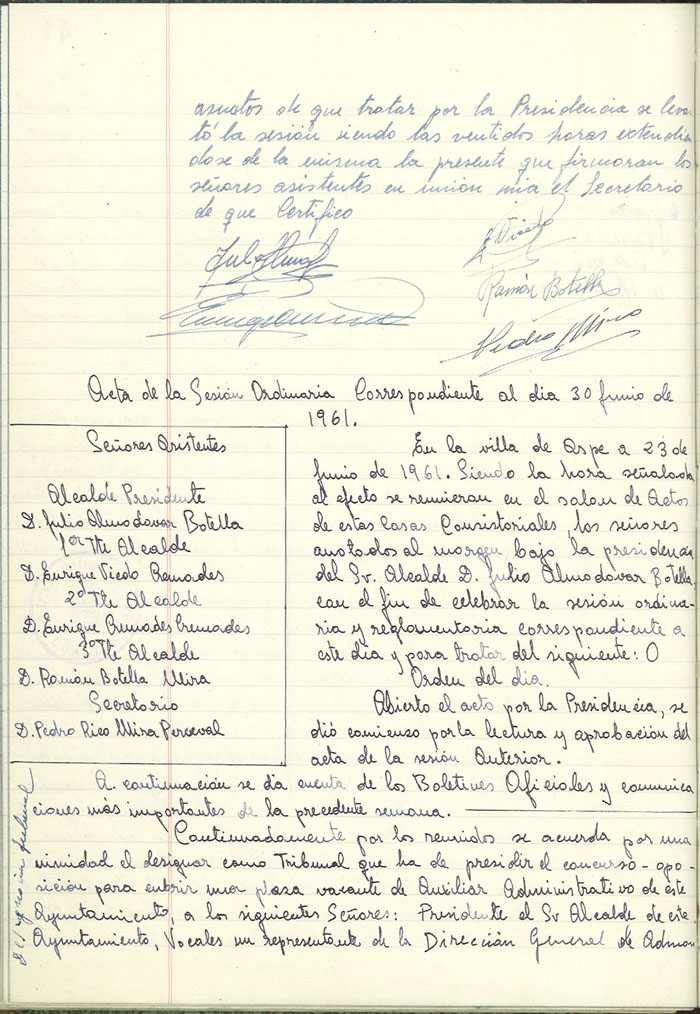 asuntos de que tratar por la Presidencia se levan
tó la sesión siendo las ventidos horas extendien
dose de la misma la presente que firmaran los
señores asistentes en unión mia el Secretario
de que Certifico
E Vicedo
Ramón Botella
Pedro Mira
Acta de la Sesión Ordinaria Correspondiente al dia 30 Junio de
1961.
Señores Asistentes
Alcalde Presidente
D. Julio Almodovar Botella
1er Tte Alcalde
D. Enrique Vicedo Cremades
2º Tte Alcalde
D. Enrique Cremades Cremades
3º Tte Alcalde
D. Ramón Botella Mira
Secretario
D. Pedro Rico Mira Perceval
En la villa de Aspe a 23 de
Junio de 1961. Siendo la hora señalada
al efecto se reunieran en el salon de Actos
de estas Casas Consistoriales, los señores
anotados al margen bajo la presidencia
del Sr. Alcalde D. Julio Almodovar Botella
con el fin de celebrar la sesión ordina-
ria y reglamentaria correspondiente a
este dia y para tratar del siguiente: O
Orden del dia.
Abierto el acto por la Presidencia, se
dió comienzo por la lectura y aprobación del
acta de la sesión Anterior.
A continuación se dia cuenta de los Boletines Oficiales y comunica
ciones más importantes de la precedente semana.
Continuadamente por los reunidos se acuerda por una
nimidad el designar como Tribunal que ha de presidir el concurso-opo-
sición para cubrir una plaza vacante de Auxiliar Administrativo de este
Ayuntamiento, a los siguientes Señores: Presidente el Sr Alcalde de este
Ayuntamiento, Vocales un representante de la Dirección General de Admon
Designain tribunal